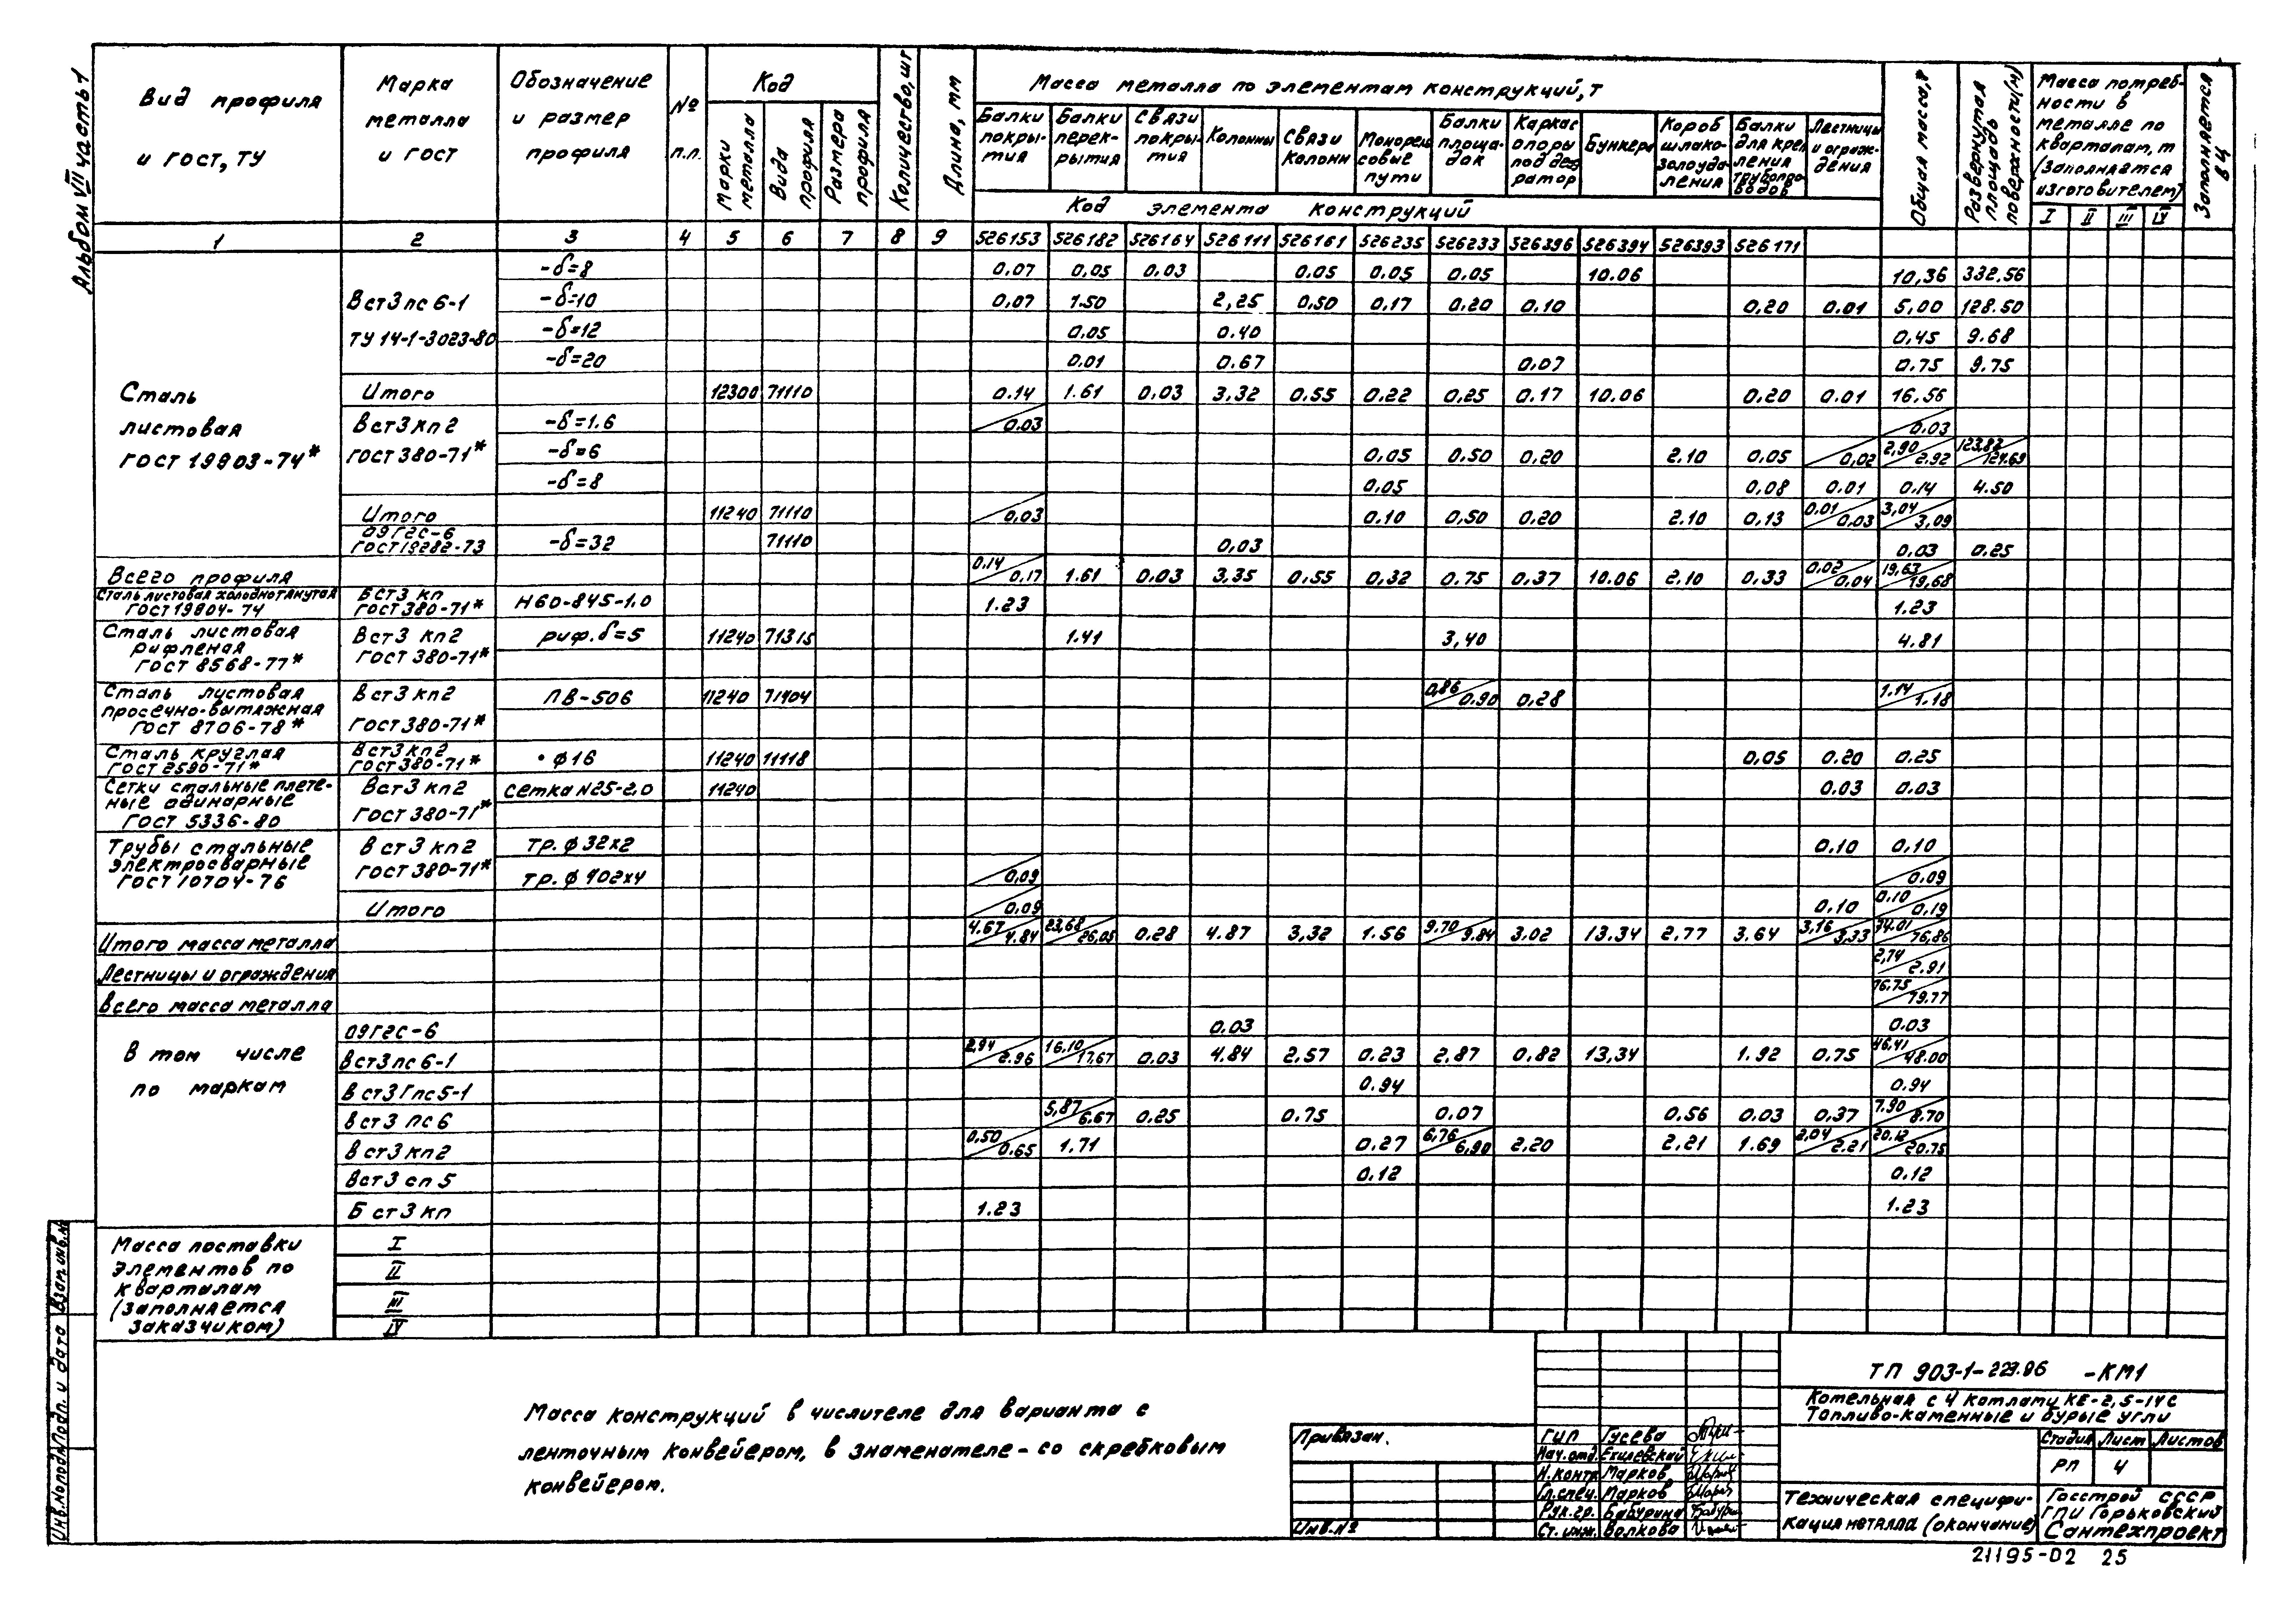 Альбом VII часть 1
Вид профиля и ГОСТ, ТУ
Марка металла и ГОСТ
Обозначение и размер профиля
№ п.п.
Код
Марки металла
Вида профиля
Размера профиля
Количество, шт
Длина, мм
Масса металла по элементам конструкций, т
Балки покры-тия
Балки перек-рытия
Связи покры-тия
Колонны
Связи колонн
Монорель совые пути
Балки площа-док
Каркас опоры под деа ратор
Бункера
Короб шлако-золоуда-ления
Балки для креп ления трубопро-водов
Лестницы и ограж-дения
Код элемента конструкций
Общая масса, т
Развернутая площадь поверхности (м²)
Масса потреб-ности в металле по кварталам, т (заполняется изготовителем)
I II III IV
Заполняется ВЦ
1 2 3 4 5 6 7 8 9 526153 526182 526164 526111 526161 526235 526233 526396 526394 526393 526171
-δ=8 0.07 0,05 0,03 0.05 0.05 0.05 10.06 10,36 332.56
Вст3пс6-1 -δ=10 0,07 1.50 2,25 0,50 0.17 0.20 0.10 0,20 0.01 5,00 128.50
ТУ 14-1-3023-80 -δ=12 0.05 0.40 0,45 9.68
-δ=20 0.01 0.67 0,07 0.75 9.75
Сталь листовая ГОСТ 19903-74*
Итого 12300 71110 0.14 1.61 0,03 3,32 0.55 0.22 0,25 0.17 10.06 0.20 0.01 16,56
Вст3кп2 -δ=1.6 0.03 0.03
ГОСТ 380-71* -δ=6 0.05 0.50 0.20 2.10 0,05 0,02 2,90 2.92 123.82 124.69
-δ=8 0.05 0,08 0.01 0.14 4.50
Итого 11240 71110 0,03 0.10 0,50 0.20 2.10 0.13 0.01 0.03 3,04 3,09
09Г2С-6 ГОСТ 19282-73 -δ=32 71110 0,03 0.03 0.25
Всего профиля 0.14 0.17 1.61 0.03 3,35 0.55 0,32 0.75 0,37 10.06 2.10 0.33 0.02 0.04 19,63 19,68
Сталь листовая холоднотянутая ГОСТ 19904-74 Бст3 кп ГОСТ 380-71* Н60-845-1.0 1.23 1.23
Сталь листовая рифленая ГОСТ 8568-77* Вст3 кп2 ГОСТ 380-71* риф. δ=5 11240 71315 1.41 3,40 4.81
Сталь листовая просечно-вытяжная ГОСТ 8706-78* Вст3 кп2 ГОСТ 380-71* ПВ-506 11240 71404 0,86 0.90 0,28 1.14 1.18
Сталь круглая ГОСТ 2590-71* Вст3кп2 ГОСТ 380-71* • ф16 11240 11118 0,05 0.20 0.25
Сетки стальные плете-ные одинарные ГОСТ 5336-80 Вст3 кп2 ГОСТ 380-71* сетка N25-2,0 11240 0.03 0.03
Трубы стальные электросварные ГОСТ 10704-76 Вст3 кп2 ГОСТ 380-71* тр. ф 32х2 0.10 0,10
тр. ф 102х4 0,09 0.09
Итого 0.09 0.10 0.10 0,19
Итого масса металла 4.67 4.84 23,68 26,05 0.28 4.87 3,32 1.56 9.70 9.84 3.02 13.34 2.77 3.64 3,16 3,33 74.01 76,86
Лестницы и ограждения 2,74 2.91
Всего масса металла 76.75 79.77
В том числе по маркам
09Г2С-6 0.03 0.03
Вст3пс6-1 2,94 2.96 16.10 17,67 0.03 4.84 2,57 0.23 2,87 0,82 13,34 1.92 0,75 46,41 48.00
Вст3Гпс5-1 0.94 0.94
Вст3 пс 6 5,87 6.67 0.25 0.75 0.07 0.56 0.03 0,37 7.90 8.70
Вст3 кп2 0.50 0.65 1.71 0.27 6,76 6,90 2.20 2.21 1.69 2,04 2.21 20.12 20.75
Вст3 сп 5 0.12 0.12
Б ст3 кп 1.23 1.23
Масса поставки элементов по кварталам (заполняется заказчиком)
I
II
III
IV
Масса конструкций в числителе для варианта с
ленточным конвейером, в знаменателе - со скребковым
конвейером.
Привязан.
Инв.№
ГИП Гусева
Нач.отд.
Н.контр. Марков
Гл.спец. Марков
Рук.гр. Бабурина
Ст. инж. Волкова
ТП 903-1-229.86 -КМ1
Котельная с 4 котлами КЕ-2,5-14С
Топливо-каменные и бурые угли
Стадия Лист Листов
РП 4
Техническая специфи-
кация металла (окончание)
Госстрой СССР
ГПИ Горьковский
Сантехпроект
21195-02 25
Инв.№ подл. Подп. и дата Взам. инв.№